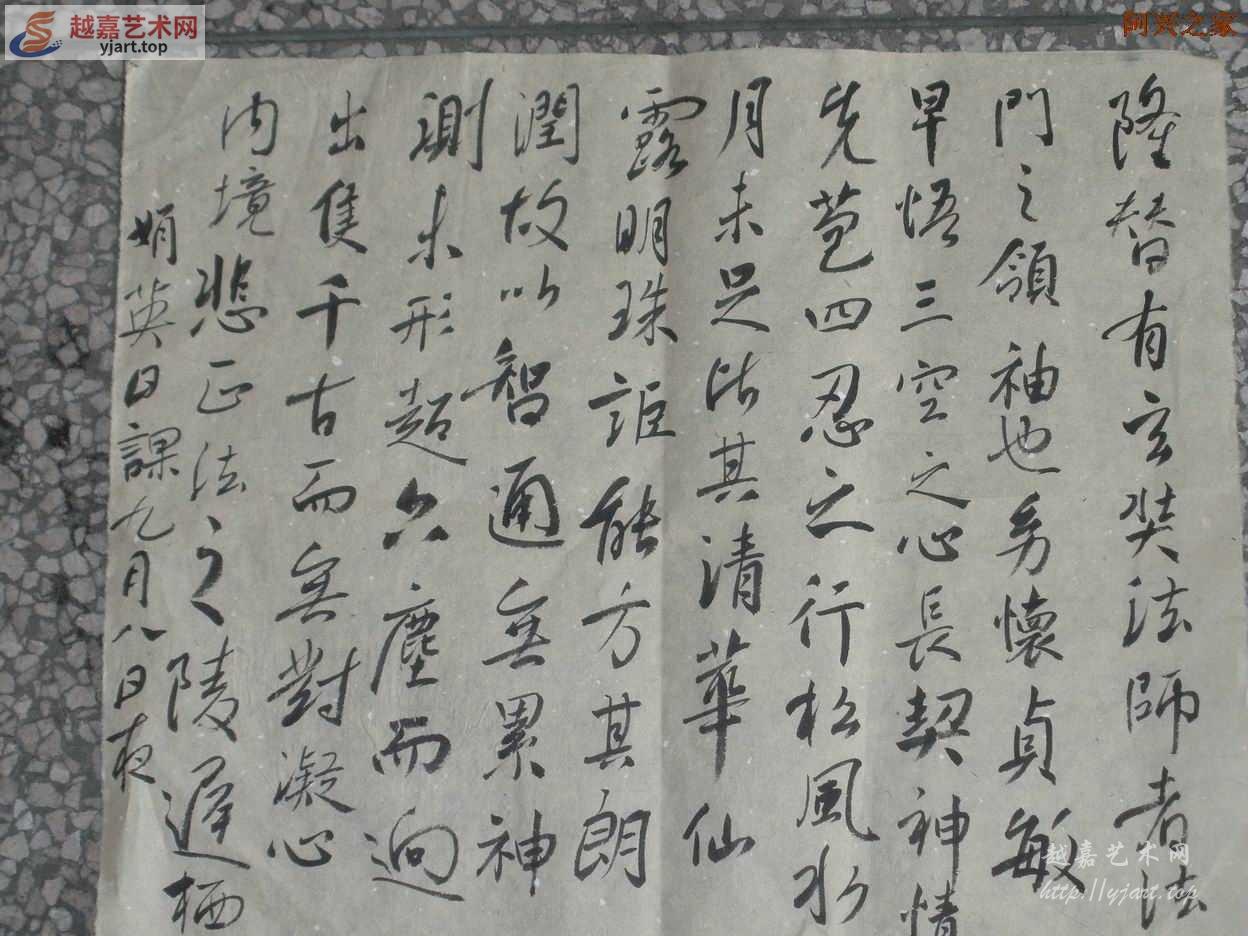 越嘉艺术网
yjart.top
阿兴之家
隆替有玄奘法師者法
門之領袖也㓜懷貞敏
早悟三空之心長契神情
先苞四忍之行松風水
月未足比其清華仙
露明珠詎能方其朗
潤故以智通無累神
測未形超六塵而迥
出隻千古而無對凝心
内境悲正法之陵遲栖
娟英日課九月八日夜
越嘉艺术网
http://yjart.top